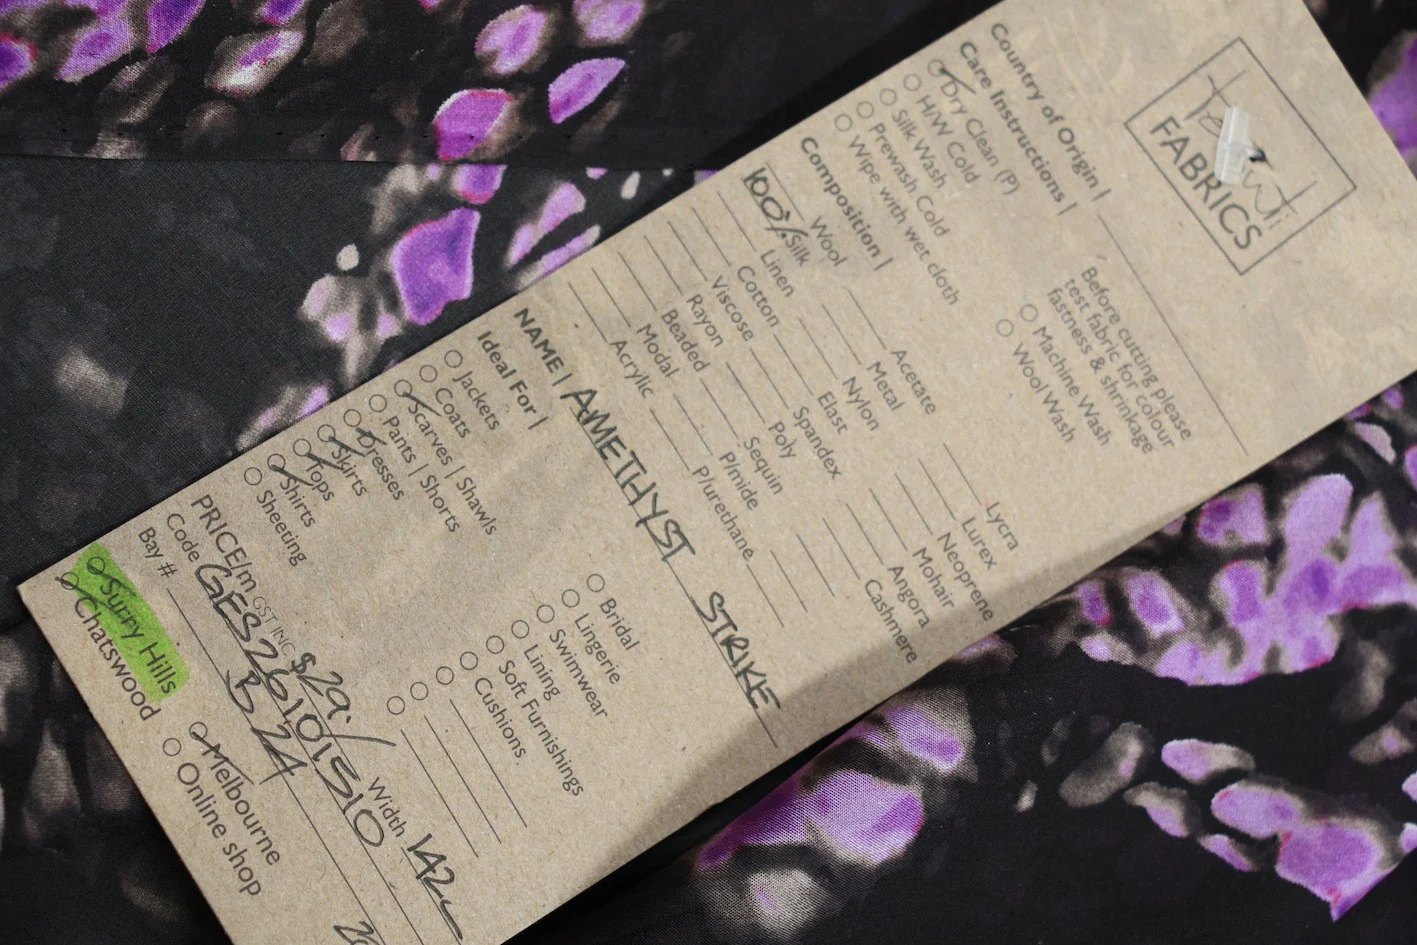 FABRICS
Country of Origin |
Care Instructions |
Dry Clean (P)
H/W Cold
Silk Wash
Prewash Cold
Wipe with wet cloth
Before cutting please
test fabric for colour
fastness & shrinkage
Machine Wash
Wool Wash
Composition |
Wool
100% Silk
Linen
Cotton
Viscose
Rayon
Beaded
Modal
Acrylic
Acetate
Metal
Nylon
Elast
Spandex
Poly
Sequin
P/mide
P/urethane
Lycra
Lurex
Neoprene
Mohair
Angora
Cashmere
NAME | AMETHYST STRIKE
Ideal For |
Jackets
Coats
Scarves | Shawls
Pants | Shorts
Dresses
Skirts
Tops
Shirts
Sheeting
Bridal
Lingerie
Swimwear
Lining
Soft Furnishings
Cushions
PRICE/m GST INC $29./ Width 142
Code GES26101510
Bay # B 24
Surry Hills
Chatswood
Melbourne
Online shop